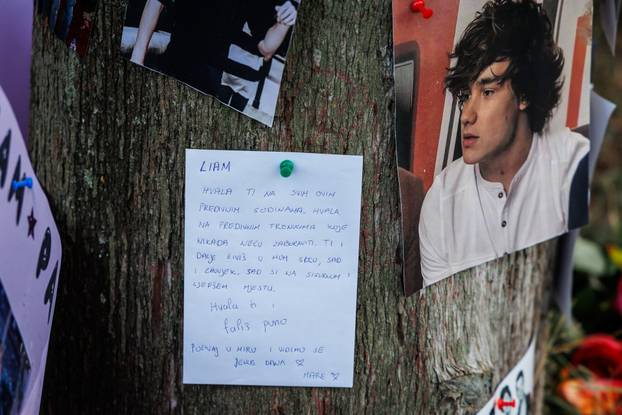 LIAM
HVALA TI NA SVIM OVIM
PREDIVNIM GODINAMA. HVALA
NA PREDIVNIM TRENUCIMA KOJE
NIKADA NEĆU ZABORAVITI. TI I
DALJE ŽIVIŠ U MOM SRCU, SAD
I ZAUVJEK. SAD SI NA SIGURNOM I
LJEPŠEM MJESTU.
Hvala ti i
fališ puno
POČIVAJ U MIRU I VIDIMO SE
JEDNOG DANA
MARE
PA